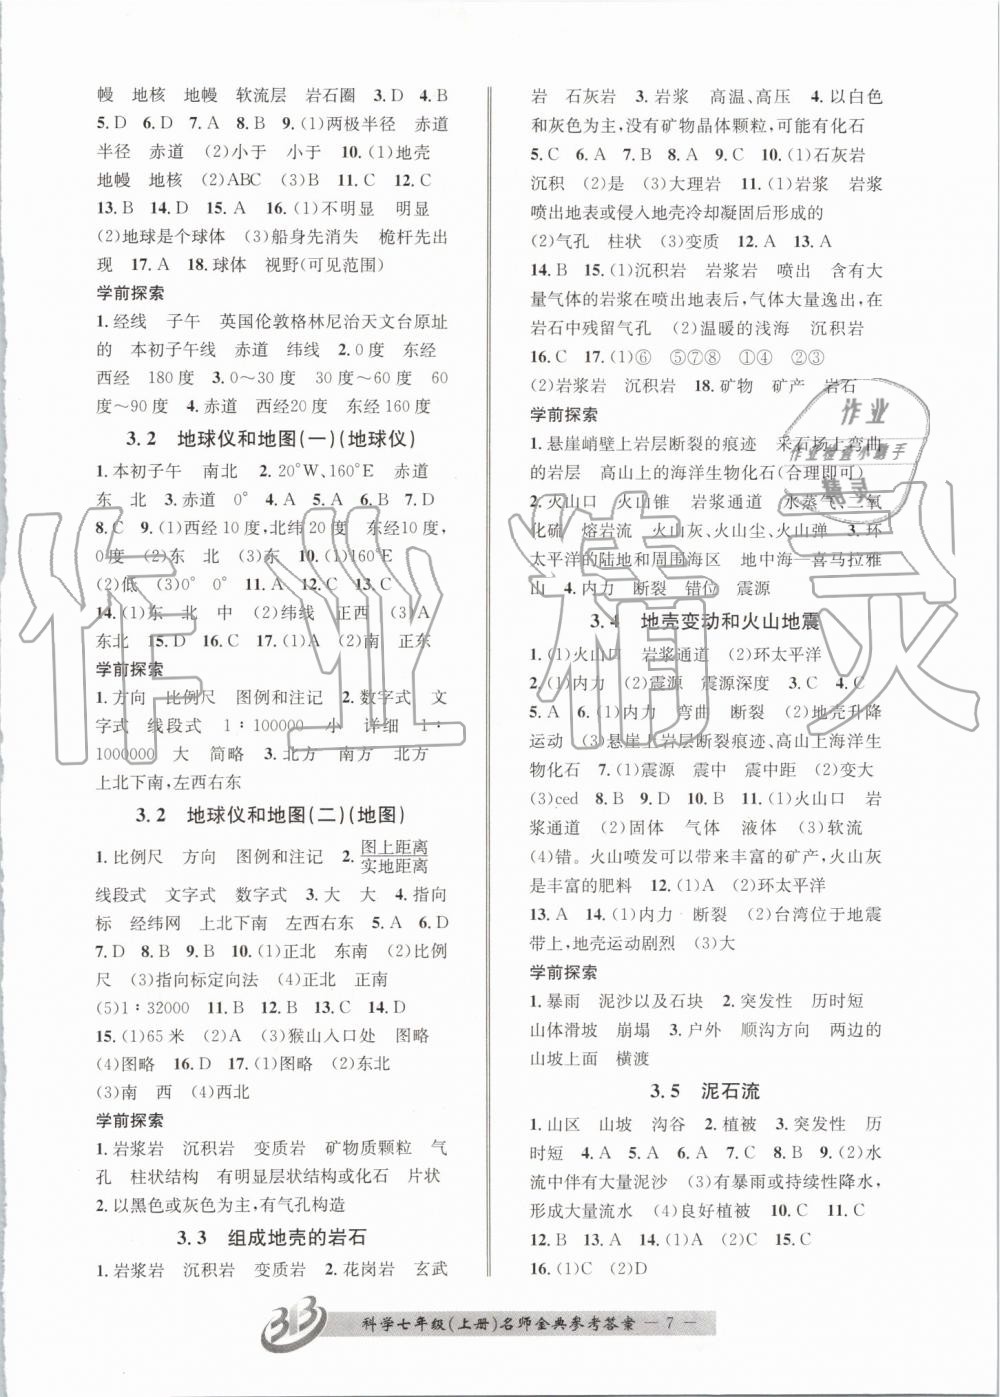 幔　地核　地幔　软流层　岩石圈　3.D　4.B
5.D　6.D　7.A　8.B　9.(1)两极半径　赤道
半径　赤道　(2)小于　小于　10.(1)地壳
地幔　地核　(2)ABC　(3)B　11.C　12.C
13.B　14.D　15.A　16.(1)不明显　明显
(2)地球是个球体　(3)船身先消失　桅杆先出
现　17.A　18.球体　视野(可见范围)
学前探索
1.经线　子午　英国伦敦格林尼治天文台原址
的　本初子午线　赤道　纬线　2.0度　东经
西经　180度　3.0～30度　30度～60度　60
度～90度　4.赤道　西经20度　东经160度
3.2　地球仪和地图(一)(地球仪)
1.本初子午　南北　2.20°W、160°E　赤道
东　北　3.赤道　0°　4.B　5.B　6.D　7.D
8.C　9.(1)西经10度,北纬20度　东经10度,
0度　(2)东　北　(3)D　10.(1)160°E
(2)低　(3)0°　0°　11.A　12.C　13.C
14.(1)东　北　中　(2)纬线　正西　(3)A
东北　15.D　16.C　17.(1)A　(2)南　正东
学前探索
1.方向　比例尺　图例和注记　2.数字式　文
字式　线段式　1∶100000　小　详细　1∶
1000000　大　简略　3.北方　南方　北方
上北下南,左西右东
3.2　地球仪和地图(二)(地图)
1.比例尺　方向　图例和注记　2.图上距离/实地距离
线段式　文字式　数字式　3.大　大　4.指向
标　经纬网　上北下南　左西右东　5.A　6.D
7.D　8.B　9.B　10.(1)正北　东南　(2)比例
尺　(3)指向标定向法　(4)正北　正南
(5)1∶32000　11.B　12.B　13.C　14.D
15.(1)65米　(2)A　(3)猴山入口处　图略
(4)图略　16.D　17.(1)图略　(2)东北
(3)南　西　(4)西北
学前探索
1.岩浆岩　沉积岩　变质岩　矿物质颗粒　气
孔　柱状结构　有明显层状结构或化石　片状
2.以黑色或灰色为主,有气孔构造
3.3　组成地壳的岩石
1.岩浆岩　沉积岩　变质岩　2.花岗岩　玄武
岩　石灰岩　3.岩浆　高温、高压　4.以白色
和灰色为主,没有矿物晶体颗粒,可能有化石
5.C　6.A　7.B　8.A　9.C　10.(1)石灰岩
沉积　(2)是　(3)大理岩　11.(1)岩浆　岩浆
喷出地表或侵入地壳冷却凝固后形成的
(2)气孔　柱状　(3)变质　12.A　13.A
14.B　15.(1)沉积岩　岩浆岩　喷出　含有大
量气体的岩浆在喷出地表后,气体大量逸出,在
岩石中残留气孔　(2)温暖的浅海　沉积岩
16.C　17.(1)⑥　⑤⑦⑧　①④　②③
(2)岩浆岩　沉积岩　18.矿物　矿产　岩石
学前探索
1.悬崖峭壁上岩层断裂的痕迹　采石场上弯曲
的岩层　高山上的海洋生物化石(合理即可)
2.火山口　火山锥　岩浆通道　水蒸气、二氧
化硫　熔岩流　火山灰、火山尘、火山弹　3.环
太平洋的陆地和周围海区　地中海—喜马拉雅
山　4.内力　断裂　错位　震源
3.4　地壳变动和火山地震
1.(1)火山口　岩浆通道　(2)环太平洋
2.(1)内力　(2)震源　震源深度　3.C　4.C
5.A　6.(1)内力　弯曲　断裂　(2)地壳升降
运动　(3)悬崖上岩层断裂痕迹,高山上海洋生
物化石　7.(1)震源　震中　震中距　(2)变大
(3)ced　8.B　9.D　10.B　11.(1)火山口　岩
浆通道　(2)固体　气体　液体　(3)软流
(4)错。火山喷发可以带来丰富的矿产,火山灰
是丰富的肥料　12.(1)A　(2)环太平洋
13.A　14.(1)内力　断裂　(2)台湾位于地震
带上,地壳运动剧烈　(3)大
学前探索
1.暴雨　泥沙以及石块　2.突发性　历时短
山体滑坡　崩塌　3.户外　顺沟方向　两边的
山坡上面　横渡
3.5　泥石流
1.山区　山坡　沟谷　2.植被　3.突发性　历
时短　4.A　5.A　6.D　7.A　8.C　9.(2)水
流中伴有大量泥沙　(3)有暴雨或持续性降水,
形成大量流水　(4)良好植被　10.C　11.C
12.B　13.A　14.(1)C　(2)C　15.C
16.(1)C　(2)D
科学七年级(上册)名师金典参考答案　— 7 —
作业
作业检查小助手
精灵
作业精灵